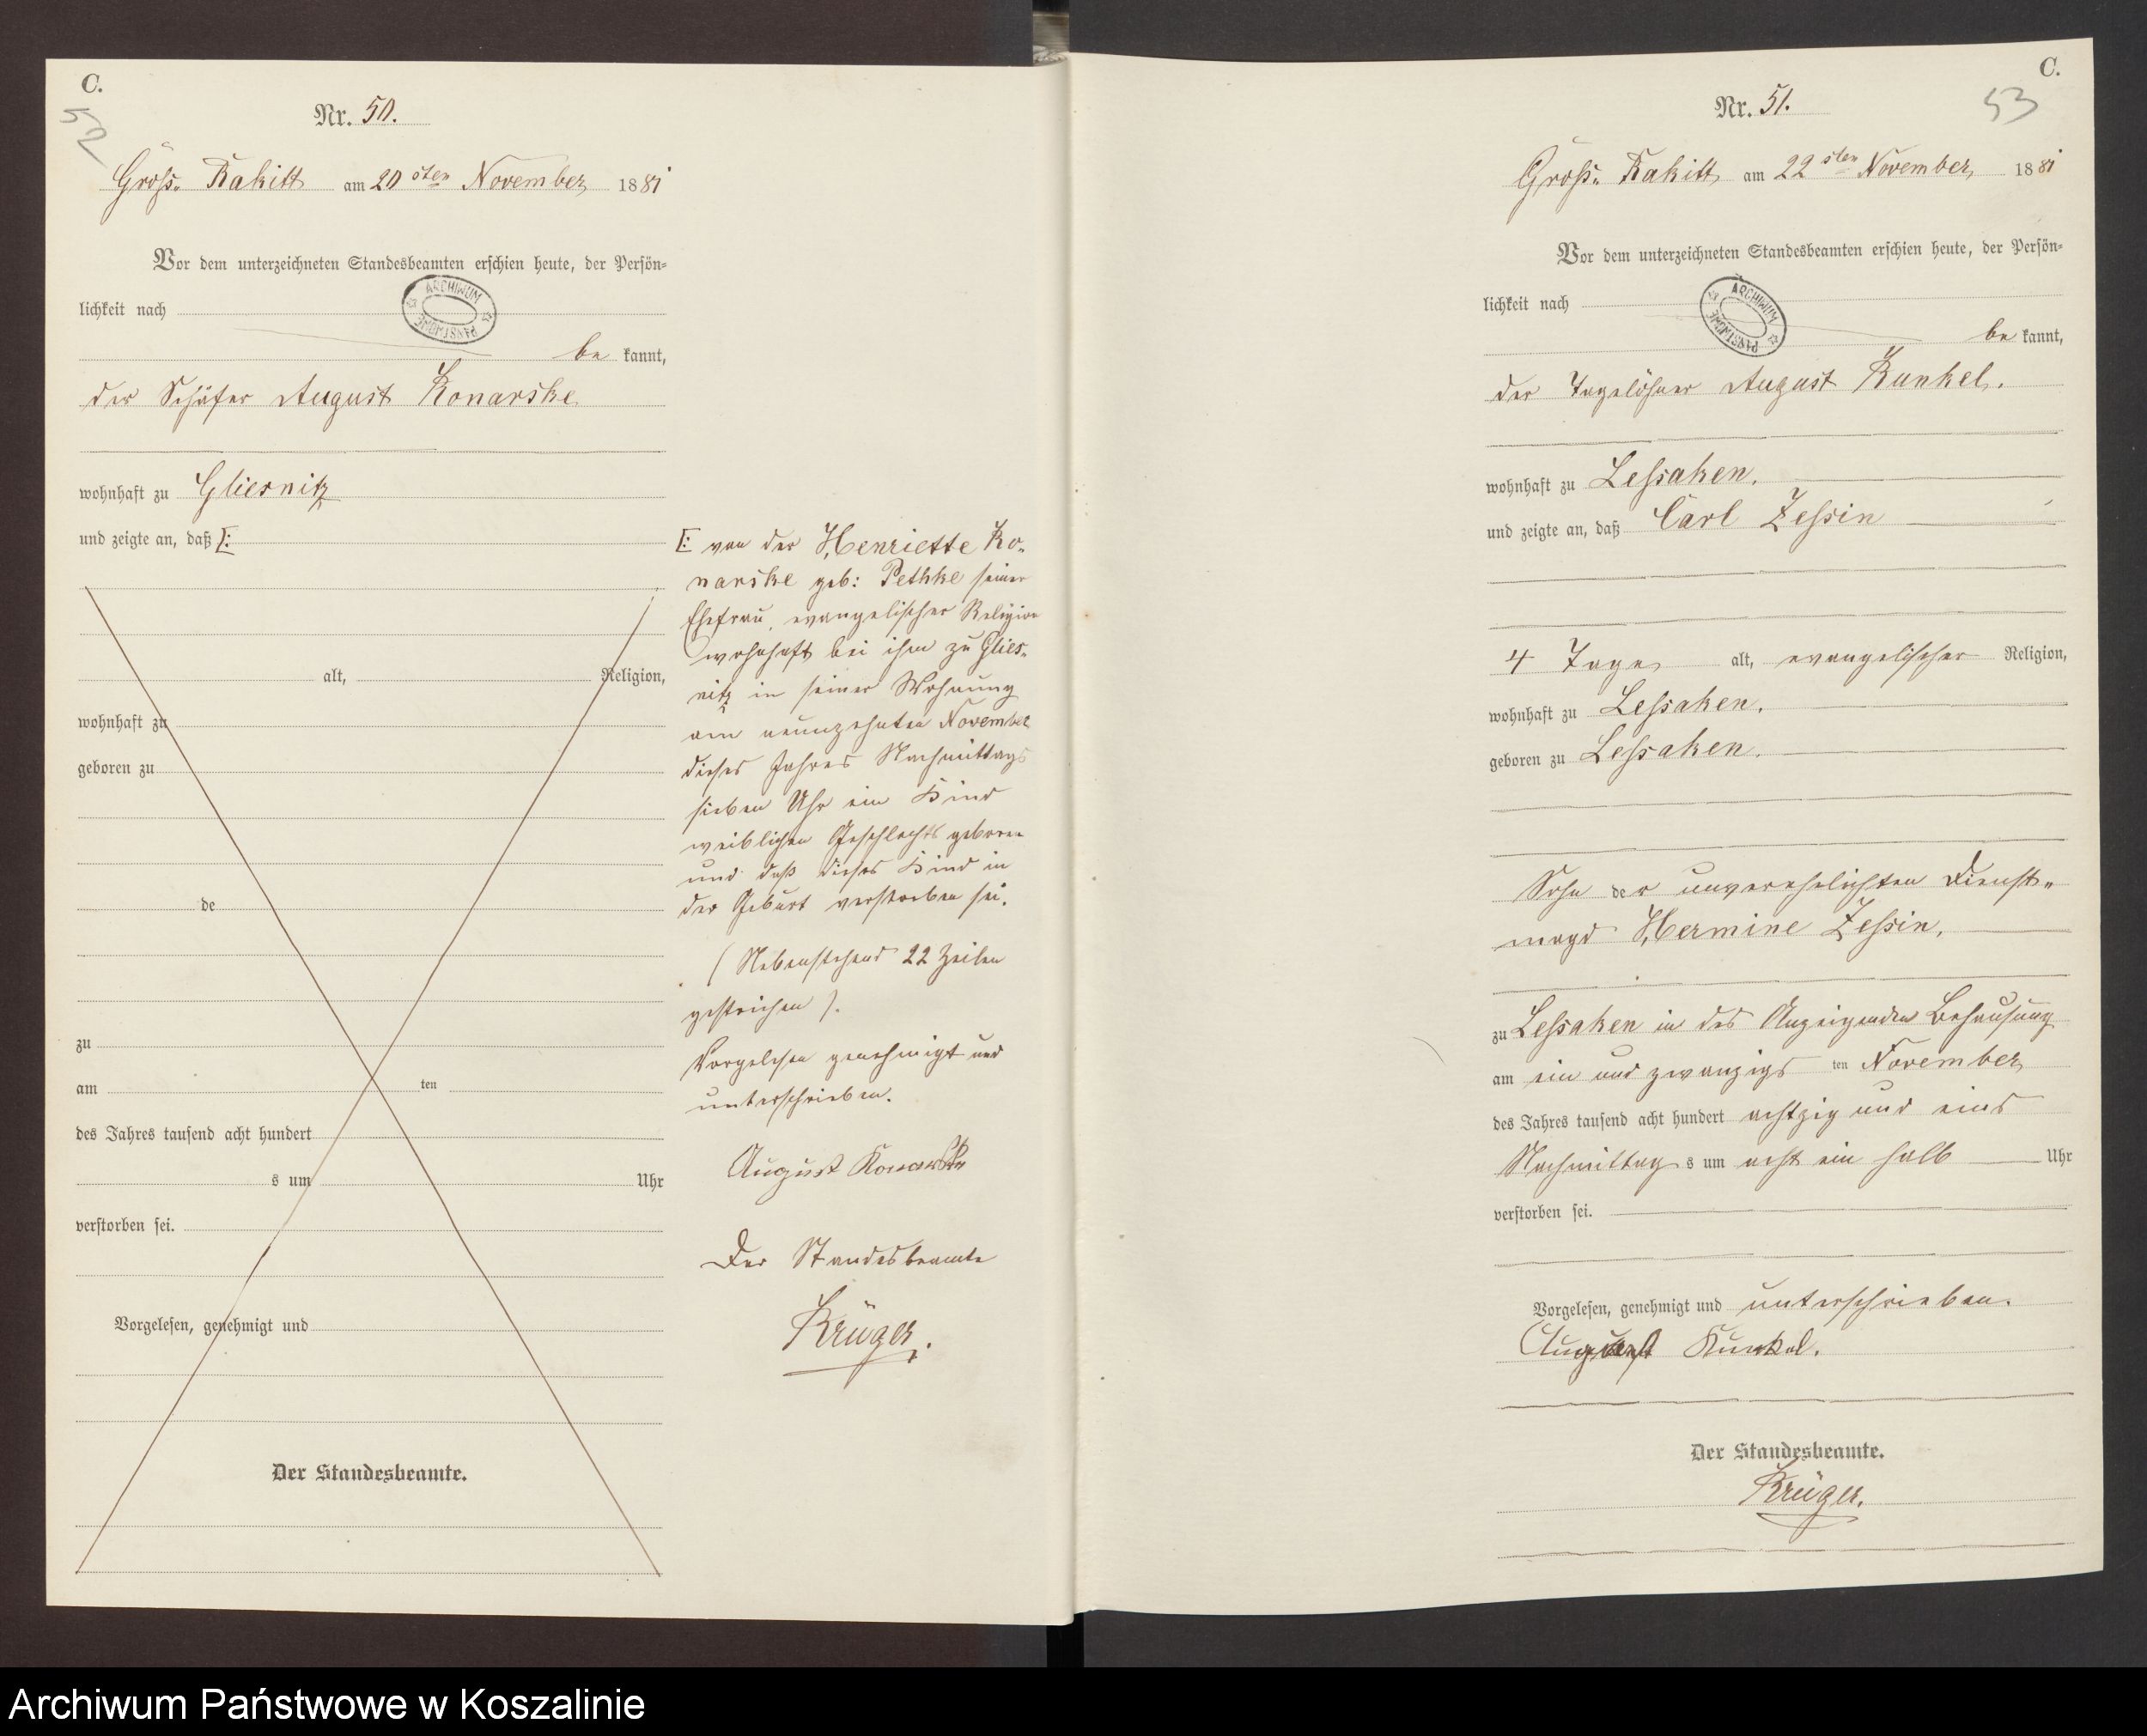 C.
52
Nr. 50.
Groß= Rakitt am 20 sten November 1881
Vor dem unterzeichneten Standesbeamten erschien heute, der Persön=
lichkeit nach
ARCHIWUM PAŃSTWOWE
be kannt,
der Schäfer August Konarske
wohnhaft zu Gliesnitz
und zeigte an, daß [:
alt, Religion,
wohnhaft zu
geboren zu
de
zu
am ten
des Jahres tausend acht hundert
s um Uhr
verstorben sei.
Vorgelesen, genehmigt und
Der Standesbeamte.
[: von der Henriette Ko=
narske geb: Pethke seiner
Ehefrau, evangelischer Religion
wohnhaft bei ihm zu Glies=
nitz in seiner Wohnung
am neunzehnten November
dieses Jahres Nachmittags
sieben Uhr ein Kind
weiblichen Geschlechts geboren
und daß dieses Kind in
der Geburt verstorben sei.
(Nebenstehend 22 Zeilen
gestrichen).
Vorgelesen genehmigt und
unterschrieben.
August Konarske
Der Standesbeamte
Krüger.
C.
53
Nr. 51.
Groß= Rakitt am 22 sten November 1881
Vor dem unterzeichneten Standesbeamten erschien heute, der Persön=
lichkeit nach
ARCHIWUM PAŃSTWOWE
be kannt,
der Tagelöhner August Kunkel.
wohnhaft zu Lessaken.
und zeigte an, daß Carl Zessin
4 Tage alt, evangelischer Religion,
wohnhaft zu Lessaken.
geboren zu Lessaken.
Sohn der unverehelichten Dienst=
magd Hermine Zessin.
zu Lessaken in des Anzeigenden Behausung
am ein und zwanzigs ten November
des Jahres tausend acht hundert achtzig und eins
Nachmittag s um acht ein halb Uhr
verstorben sei.
Vorgelesen, genehmigt und unterschrieben.
August Kunkel.
Der Standesbeamte.
Krüger.
Archiwum Państwowe w Koszalinie